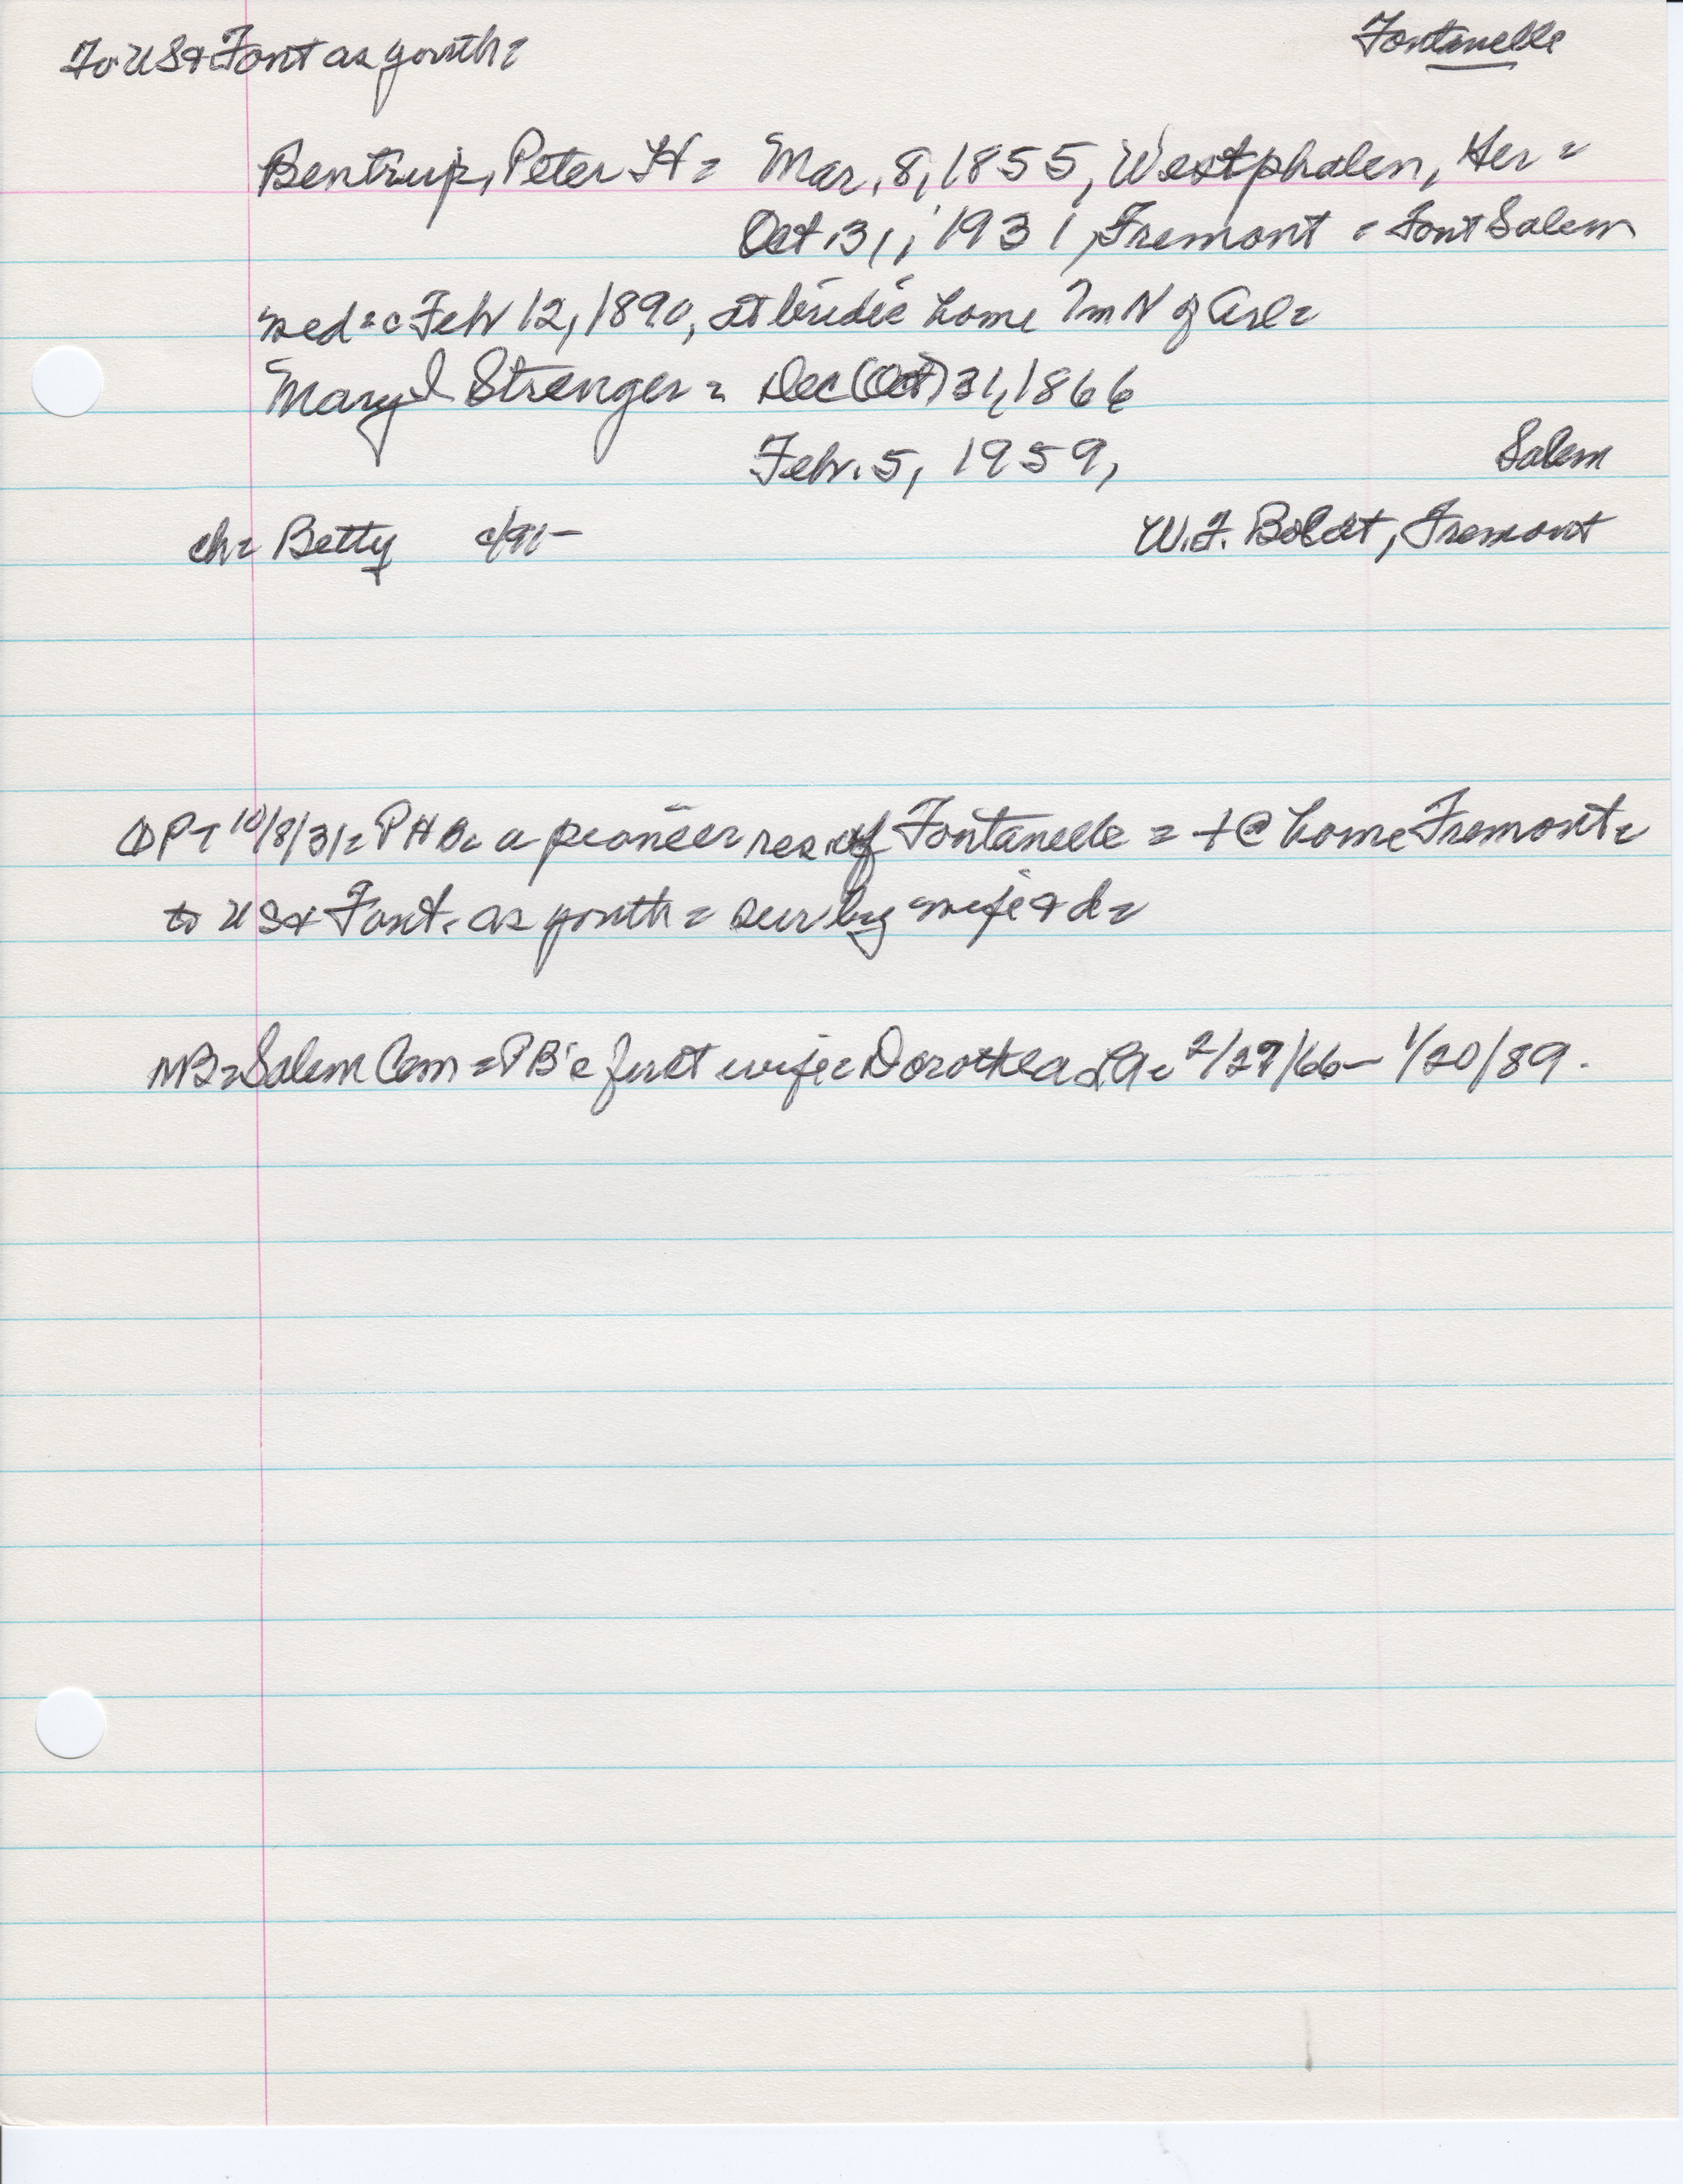 To US & Font as youth =
Fontanelle
Bentrup, Peter H = Mar. 8, 1855, Westphalen, Ger =
Oct. 31, 1931, Fremont = Font Salem
wed = c Feb 12, 1890, at bride's home 7m N of Arl =
Mary I Strenger = Dec (Oct) 31, 1866
Febr. 5, 1959, Salem
ch = Betty c/91 - W.F. Boldt, Fremont
PT 10/8/31 = PHB = a pioneer res of Fontanelle = + @ home Fremont =
to US & Font. as youth = sur by wife & d =
NB = Salem Cem = PB's first wife = Dorothea = 2/27/66 - 1/20/89.